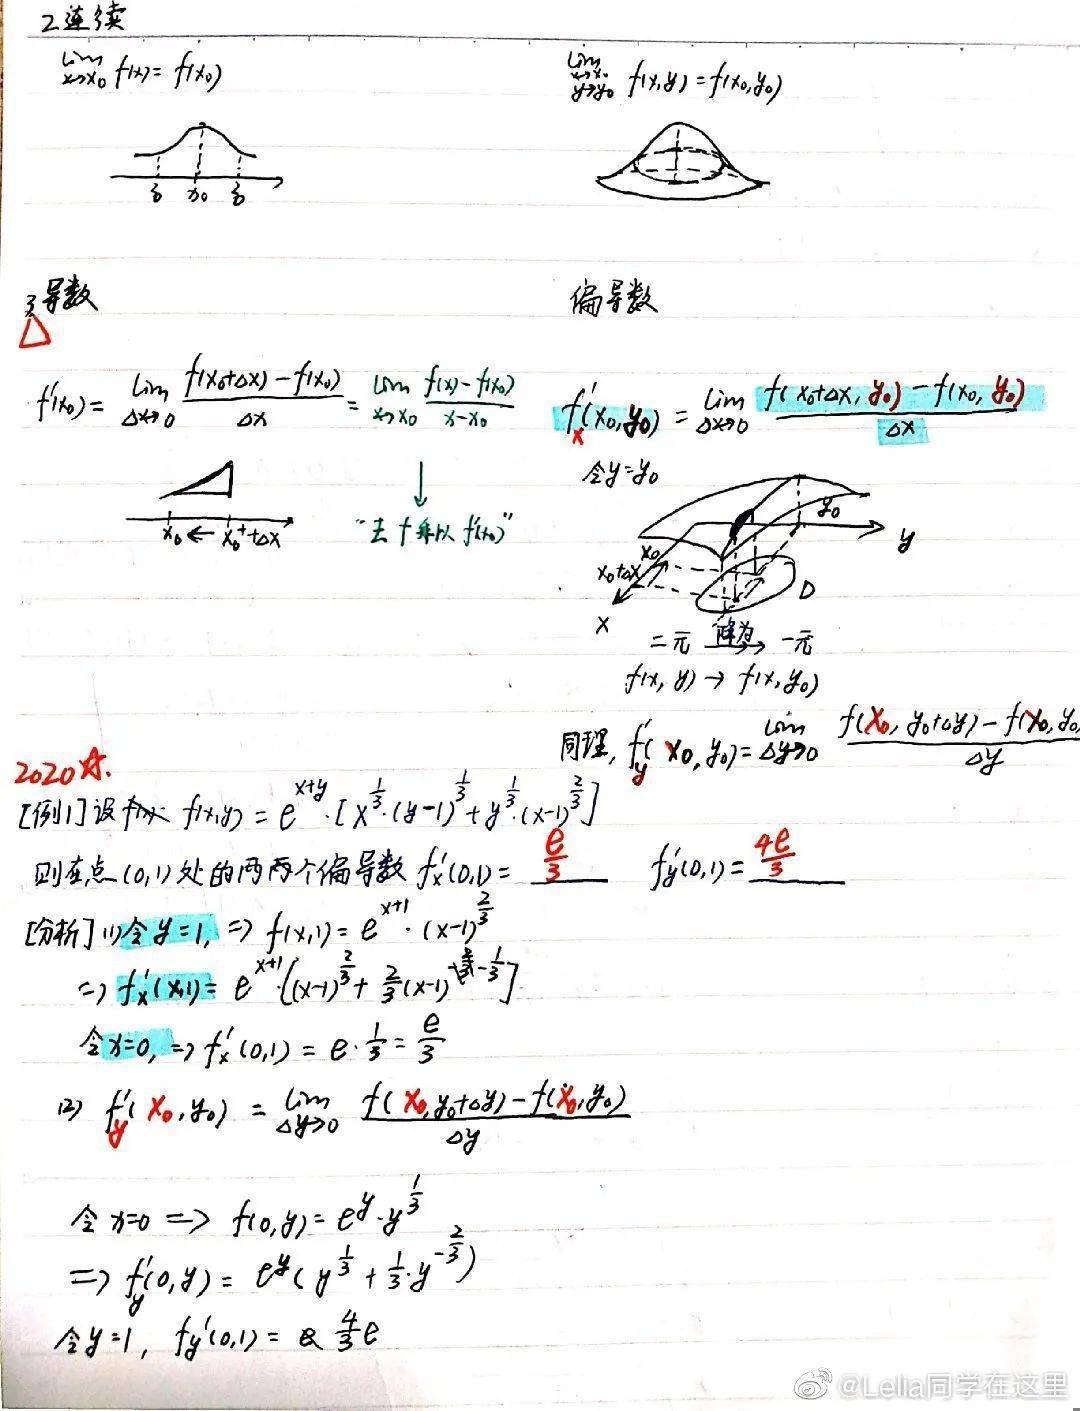 2 连续
lim x→x₀ f(x) = f(x₀)
lim x→x₀ y→y₀ f(x,y) = f(x₀,y₀)
x₀
3 导数
偏导数
f'(x₀) = lim Δx→0 (f(x₀+Δx) - f(x₀))/Δx = lim x→x₀ (f(x) - f(x₀))/(x - x₀)
f'ₓ(x₀, y₀) = lim Δx→0 (f(x₀+Δx, y₀) - f(x₀, y₀))/Δx
令y=y₀
x₀ ← x₀+Δx
"去 f 乘以 f'(x₀)"
y₀
y
x₀
x₀+Δx
D
x
二元 降为→ 一元
f(x, y) → f(x, y₀)
同理, f'_y(x₀, y₀) = lim Δy→0 (f(x₀, y₀+Δy) - f(x₀, y₀))/Δy
2020
[例1] 设 f(x,y) = e^(x+y)·[x^(1/3)·(y-1)^(1/3) + y^(1/3)·(x-1)^(2/3)]
则在点(0,1)处的两两个偏导数 f'ₓ(0,1) = e/3 f'_y(0,1) = 4e/3
[分析] (1) 令y=1, ⇒ f(x,1) = e^(x+1)·(x-1)^(2/3)
⇒ f'ₓ(x,1) = e^(x+1)·[(x-1)^(2/3) + 2/3 (x-1)^(-1/3)]
令x=0, ⇒ f'ₓ(0,1) = e·1/3 = e/3
(2) f'_y(x₀, y₀) = lim Δy→0 (f(x₀, y₀+Δy) - f(x₀, y₀))/Δy
令 x=0 ⇒ f(0,y) = e^y·y^(1/3)
⇒ f'_y(0,y) = e^y(y^(1/3) + 1/3·y^(-2/3))
令y=1, f_y'(0,1) = 4/3 e
@Lelia同学在这里